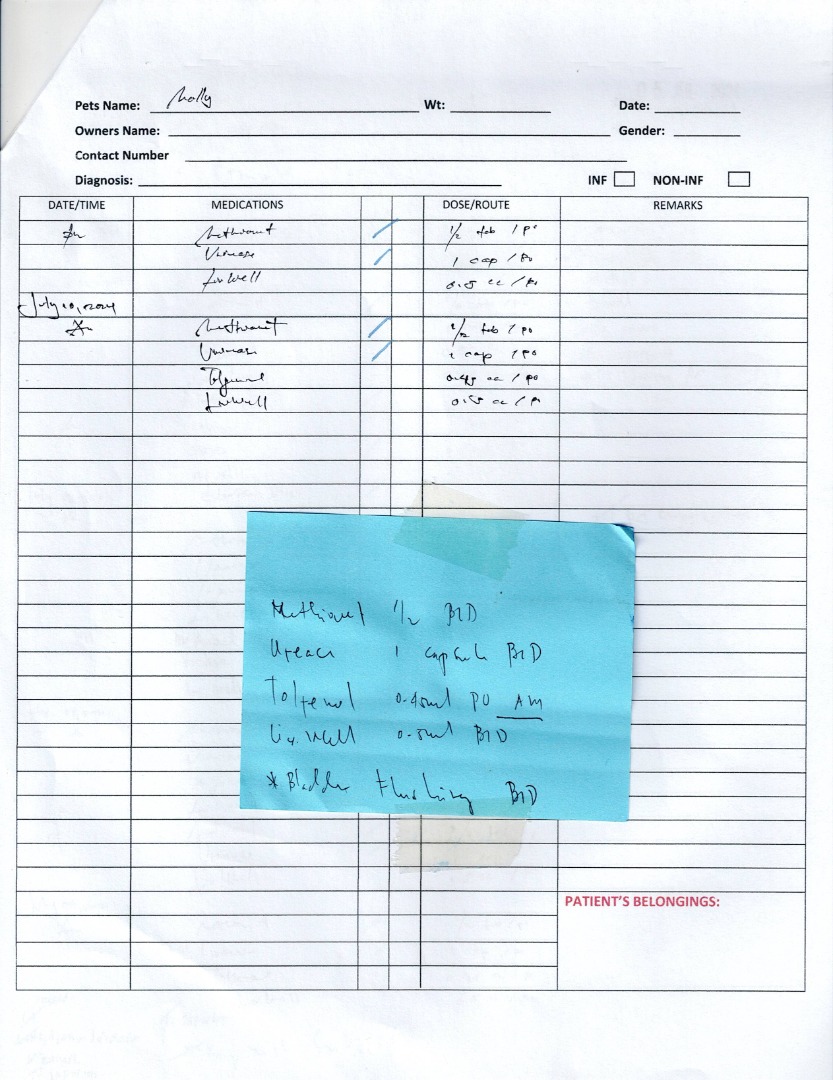 Pets Name: Molly Wt: Date:
Owners Name: Gender:
Contact Number
Diagnosis: INF NON-INF
DATE/TIME MEDICATIONS DOSE/ROUTE REMARKS
1/2 tab / po
1 cap / po
Livwell 0.5 cc / po
July 10, 2024
1/2 tab / po
1 cap / po
Tolfenol 0.45 cc / po
Livwell 0.5 cc / po
1/2 BID
1 capsule BID
Tolfenol 0.45ml PO AM
Liv. Well 0.5ml BID
*Bladder flushing BID
PATIENT'S BELONGINGS: